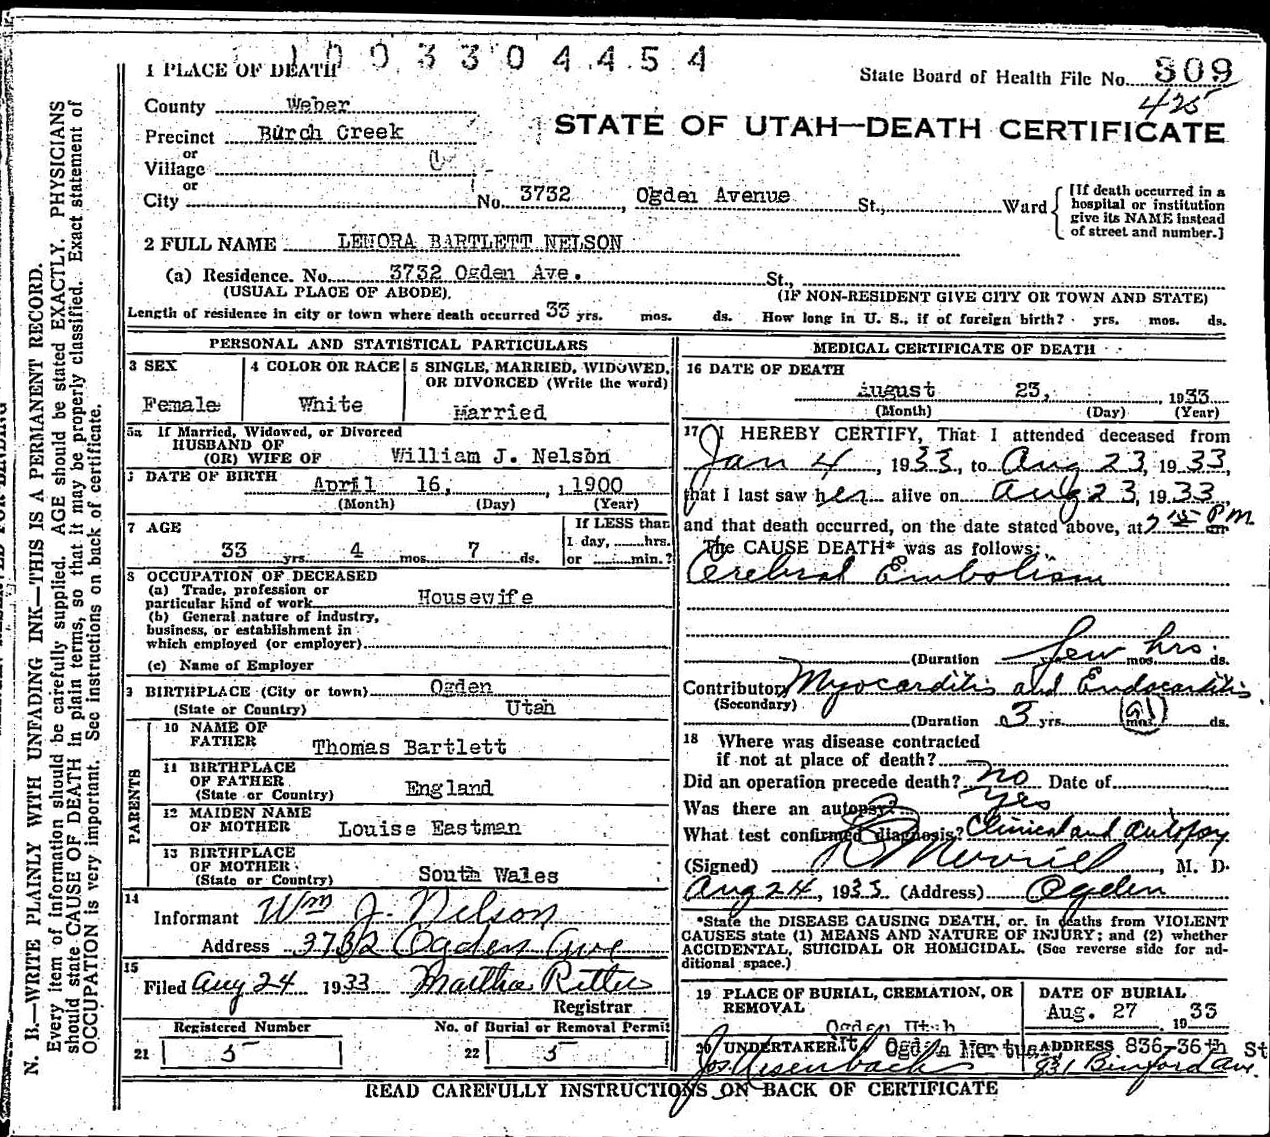 1003304454
1 PLACE OF DEATH
State Board of Health File No. 309
425
County Weber
STATE OF UTAH—DEATH CERTIFICATE
Precinct Burch Creek
or
Village
or
City No. 3732, Ogden Avenue St., Ward
[If death occurred in a
hospital or institution
give its NAME instead
of street and number.]
2 FULL NAME LENORA BARTLETT NELSON
(a) Residence. No. 3732 Ogden Ave. St.,
(USUAL PLACE OF ABODE). (IF NON-RESIDENT GIVE CITY OR TOWN AND STATE)
Length of residence in city or town where death occurred 33 yrs. mos. ds. How long in U. S., if of foreign birth? yrs. mos. ds.
PERSONAL AND STATISTICAL PARTICULARS
3 SEX
Female
4 COLOR OR RACE
White
5 SINGLE, MARRIED, WIDOWED,
OR DIVORCED (Write the word)
Married
5a If Married, Widowed, or Divorced
HUSBAND OF
(OR) WIFE OF William J. Nelson
DATE OF BIRTH April 16, 1900
(Month) (Day) (Year)
7 AGE
33 yrs. 4 mos. 7 ds.
If LESS than
1 day, hrs.
or min.?
8 OCCUPATION OF DECEASED
(a) Trade, profession or
particular kind of work Housewife
(b) General nature of industry,
business, or establishment in
which employed (or employer)
(c) Name of Employer
9 BIRTHPLACE (City or town) Ogden
(State or Country) Utah
PARENTS
10 NAME OF
FATHER Thomas Bartlett
11 BIRTHPLACE
OF FATHER
(State or Country) England
12 MAIDEN NAME
OF MOTHER Louise Eastman
13 BIRTHPLACE
OF MOTHER
(State or Country) South Wales
14
Informant Wm J. Nelson
Address 3732 Ogden Ave
15
Filed Aug 24 1933 Martha Ritter
Registrar
Registered Number No. of Burial or Removal Permit
21 5 22 5
MEDICAL CERTIFICATE OF DEATH
16 DATE OF DEATH
August 23, 1933
(Month) (Day) (Year)
17 I HEREBY CERTIFY, That I attended deceased from
Jan 4, 1933, to Aug 23, 1933,
that I last saw her alive on Aug 23, 1933
and that death occurred, on the date stated above, at 2 15 PM
The CAUSE DEATH* was as follows:
Cerebral Embolism
(Duration few hrs. mos. ds.
Contributory Myocarditis and Endocarditis
(Secondary)
(Duration 3 yrs. mos. ds.
18 Where was disease contracted
if not at place of death?
Did an operation precede death? no Date of
Was there an autopsy? yes
What test confirmed diagnosis? Clinical and autopsy
(Signed) Merrill, M. D.
Aug 24, 1933 (Address) Ogden
*State the DISEASE CAUSING DEATH, or, in deaths from VIOLENT
CAUSES state (1) MEANS AND NATURE OF INJURY; and (2) whether
ACCIDENTAL, SUICIDAL OR HOMICIDAL. (See reverse side for ad-
ditional space.)
19 PLACE OF BURIAL, CREMATION, OR
REMOVAL
Ogden Utah
DATE OF BURIAL
Aug. 27 1933
20 UNDERTAKER Ogden Mortua ADDRESS 836-36th St
831 Binford Ave.
READ CAREFULLY INSTRUCTIONS ON BACK OF CERTIFICATE
N. B.—WRITE PLAINLY WITH UNFADING INK—THIS IS A PERMANENT RECORD.
Every item of information should be carefully supplied. AGE should be stated EXACTLY. PHYSICIANS
should state CAUSE OF DEATH in plain terms, so that it may be properly classified. Exact statement of
OCCUPATION is very important. See instructions on back of certificate.